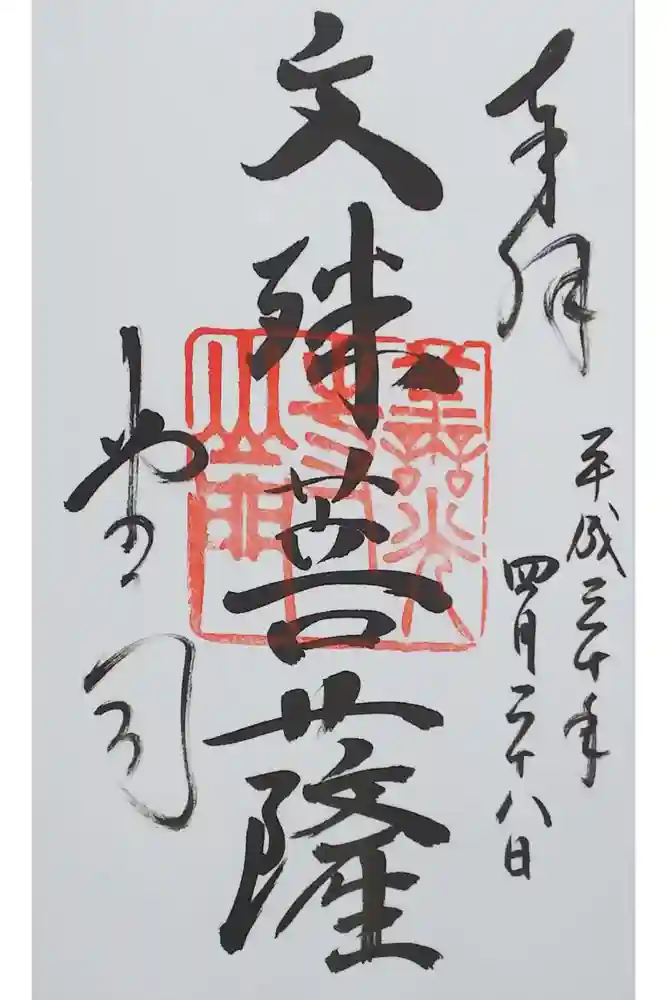 奉拝
平成三十年
四月二十八日
文殊菩薩
堂司